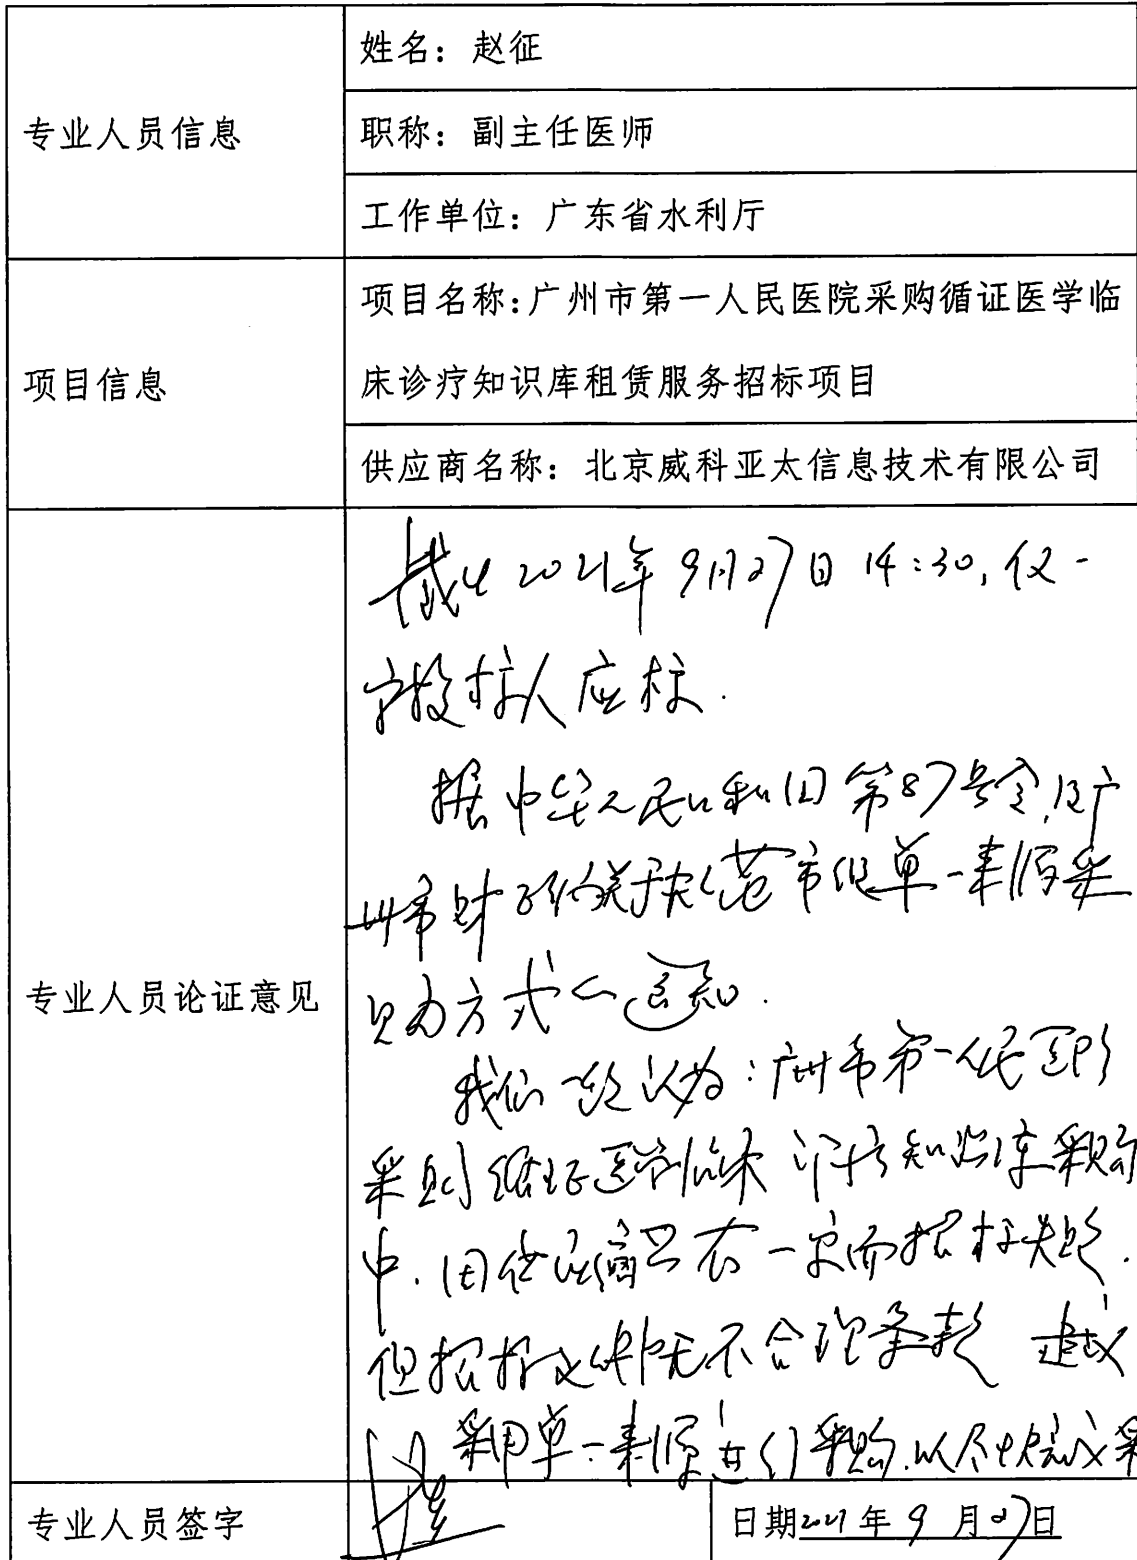 专业人员信息
姓名：赵征
职称：副主任医师
工作单位：广东省水利厅
项目信息
项目名称:广州市第一人民医院采购循证医学临
床诊疗知识库租赁服务招标项目
供应商名称：北京威科亚太信息技术有限公司
专业人员论证意见
截止2021年9月27日14:30,仅一
家投标人应标.
据中华人民共和国第87号令,及广
州市财政局关于规范市级单一来源采
购方式的通知.
我们一致认为:广州市第一人民医院
采购循证医学临床诊疗知识库采购
中.因供应商只有一家而招标失败.
但招标文件中无不合理条款 建议
采用单一来源进行采购.以尽快完成采
专业人员签字
日期2021年9月27日